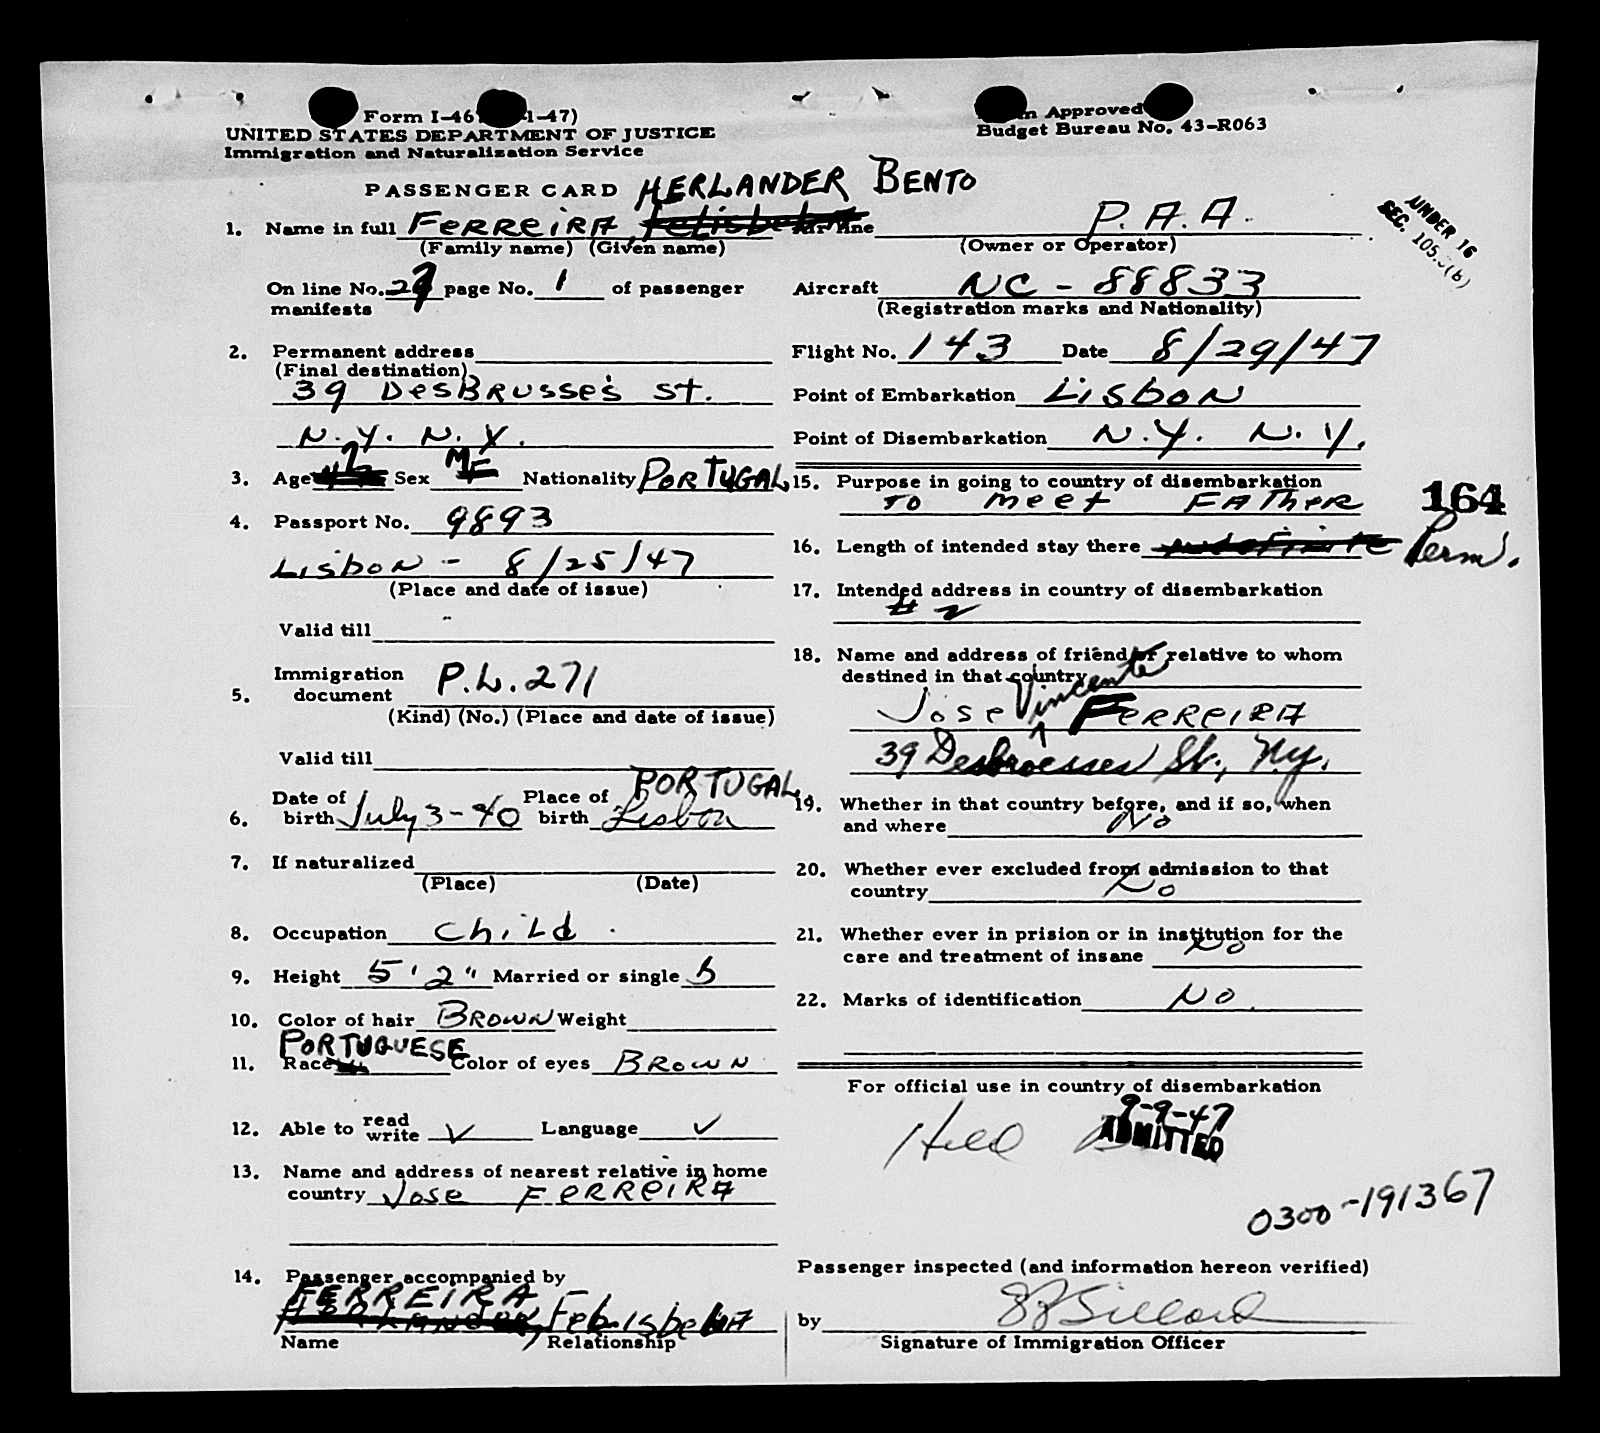 Form I-46 1-47)
UNITED STATES DEPARTMENT OF JUSTICE
Immigration and Naturalization Service
Approved
Budget Bureau No. 43-R063
PASSENGER CARD HERLANDER BENTO
1. Name in full FERREIRA,
(Family name) (Given name)
Air line P.A.A.
(Owner or Operator)
UNDER 16
SEC. 105. (b)
On line No. page No. 1 of passenger
manifests
Aircraft NC-88833
(Registration marks and Nationality)
2. Permanent address
(Final destination)
39 DesBRusses St.
N.Y. N.Y.
Flight No. 143 Date 8/29/47
Point of Embarkation LISBON
Point of Disembarkation N.Y. N.Y.
3. Age 7 Sex M Nationality PORTUGAL
4. Passport No. 9893
LISBON - 8/25/47
(Place and date of issue)
Valid till
5. Immigration document P.L. 271
(Kind) (No.) (Place and date of issue)
Valid till
6. Date of birth July 3-40 Place of birth Lisbon PORTUGAL
7. If naturalized
(Place) (Date)
8. Occupation Child
9. Height 5'2" Married or single S
10. Color of hair BROWN Weight
11. Race PORTUGUESE Color of eyes BROWN
12. Able to read write ✓ Language ✓
13. Name and address of nearest relative in home
country Jose FERREIRA
14. Passenger accompanied by
FERREIRA
Name Relationship
15. Purpose in going to country of disembarkation
TO meet FATHER
164
16. Length of intended stay there indefinite Perm.
17. Intended address in country of disembarkation
# 2
18. Name and address of friend or relative to whom
destined in that country
Jose Vincente FERREIRA
39 Desbrosses St., N.Y.
19. Whether in that country before, and if so, when
and where No
20. Whether ever excluded from admission to that
country No
21. Whether ever in prision or in institution for the
care and treatment of insane No
22. Marks of identification No
For official use in country of disembarkation
9-9-47
Held ADMITTED
0300-191367
Passenger inspected (and information hereon verified)
by
Signature of Immigration Officer